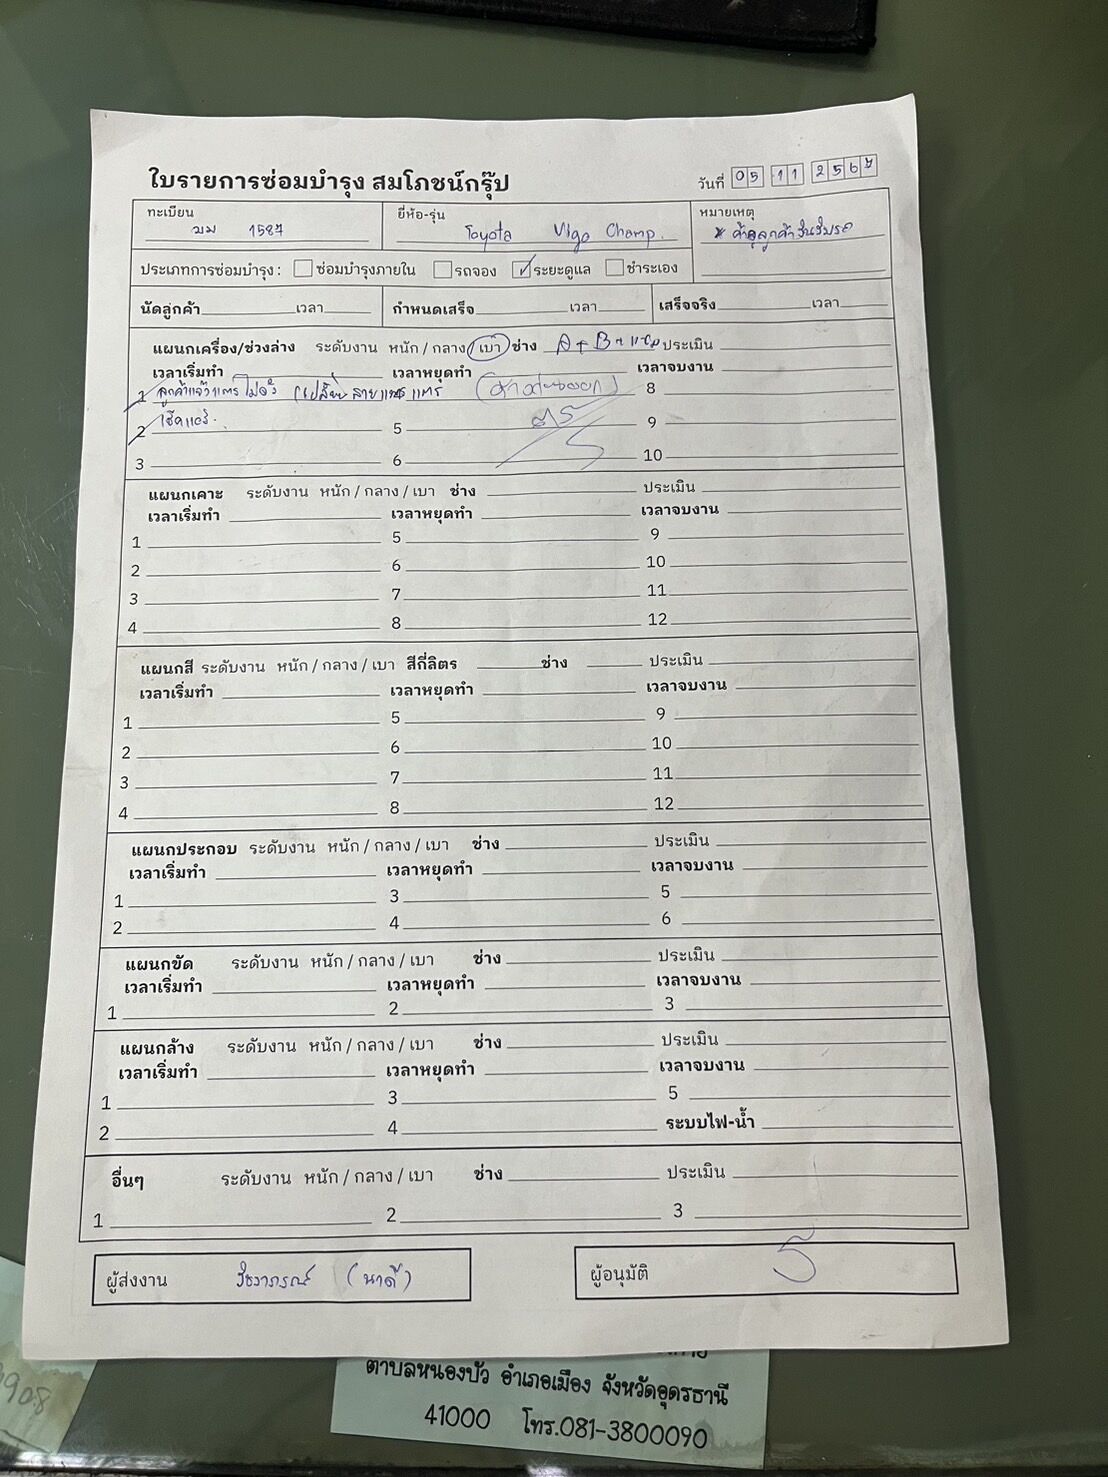 ใบรายการซ่อมบำรุง สมโภชน์กรุ๊ป
วันที่ 05 11 2567
ทะเบียน 1587
ยี่ห้อ-รุ่น Toyota Vigo Champ.
หมายเหตุ
ประเภทการซ่อมบำรุง : ซ่อมบำรุงภายใน รถจอง ระยะดูแล ชำระเอง
นัดลูกค้า เวลา กำหนดเสร็จ เวลา เสร็จจริง เวลา
แผนกเครื่อง/ช่วงล่าง ระดับงาน หนัก / กลาง / เบา ช่าง A + B + ประเมิน
เวลาเริ่มทำ เวลาหยุดทำ เวลาจบงาน
1 ลูกค้าแจ้งแตรไม่ดัง (เปลี่ยนสาย แตร 8
2 เช็คแอร์. 5 9
3 6 10
แผนกเคาะ ระดับงาน หนัก / กลาง / เบา ช่าง ประเมิน
เวลาเริ่มทำ เวลาหยุดทำ เวลาจบงาน
1 5 9
2 6 10
3 7 11
4 8 12
แผนกสี ระดับงาน หนัก / กลาง / เบา สีกี่ลิตร ช่าง ประเมิน
เวลาเริ่มทำ เวลาหยุดทำ เวลาจบงาน
1 5 9
2 6 10
3 7 11
4 8 12
แผนกประกอบ ระดับงาน หนัก / กลาง / เบา ช่าง ประเมิน
เวลาเริ่มทำ เวลาหยุดทำ เวลาจบงาน
1 3 5
2 4 6
แผนกขัด ระดับงาน หนัก / กลาง / เบา ช่าง ประเมิน
เวลาเริ่มทำ เวลาหยุดทำ เวลาจบงาน
1 2 3
แผนกล้าง ระดับงาน หนัก / กลาง / เบา ช่าง ประเมิน
เวลาเริ่มทำ เวลาหยุดทำ เวลาจบงาน
1 3 5
2 4 ระบบไฟ-น้ำ
อื่นๆ ระดับงาน หนัก / กลาง / เบา ช่าง ประเมิน
1 2 3
ผู้ส่งงาน วัชราภรณ์ (นาดี)
ผู้อนุมัติ
ตำบลหนองบัว อำเภอเมือง จังหวัดอุดรธานี
41000 โทร.081-3800090
908